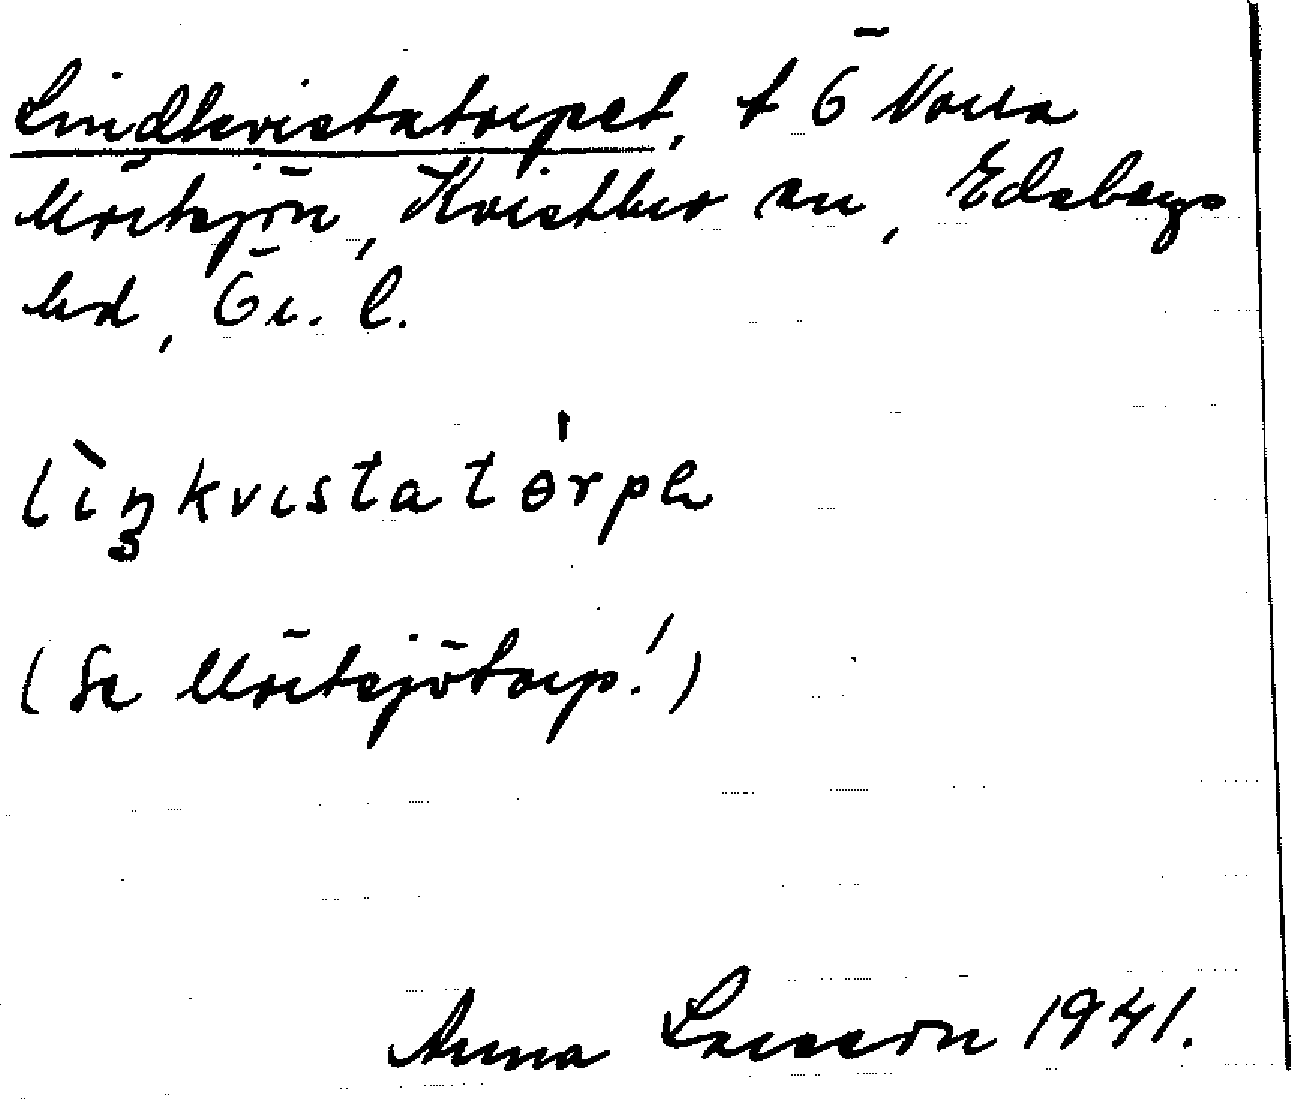 Lindkvistatorpet, t Ö Norra
Mörtsjön, Kvistbro sn, Edsbergs
hd, Ör. l.
lìŋkvıstatɵ́rpə
(Se Mörtsjötorp!)
Anna Larsson 1941.